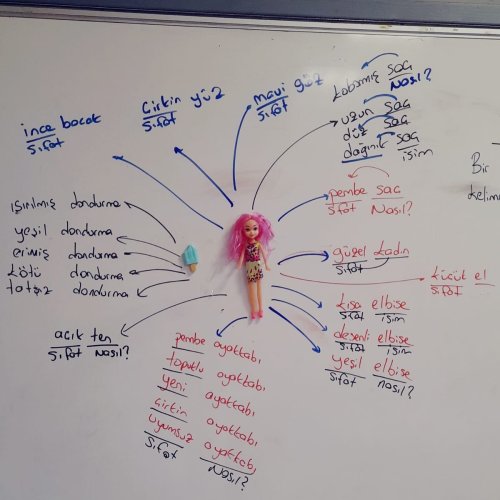 ince bacak
sıfat
Çirkin yüz
sıfat
mavi göz
sıfat
kabarmış saç
Nasıl?
uzun saç
düz saç
dağınık saç
isim
Bir
kelime
pembe saç
sıfat Nasıl?
güzel kadın
sıfat
küçük el
sıfat
kısa elbise
sıfat isim
desenli elbise
sıfat isim
yeşil elbise
sıfat nasıl?
ısırılmış dondurma
yeşil dondurma
erimiş dondurma
kötü dondurma
tatsız dondurma
açık ten
sıfat Nasıl?
pembe ayakkabı
topuklu ayakkabı
yeni ayakkabı
çirkin ayakkabı
uyumsuz ayakkabı
sıfat Nasıl?